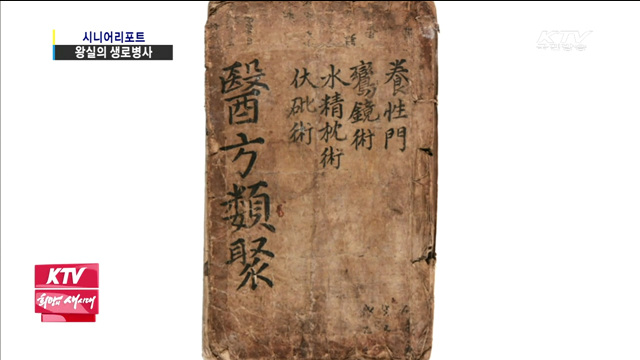 시니어리포트
왕실의 생로병사
KTV
국민방송
養性門
鸞鏡術
水精枕術
伏砒術
醫方類聚
KTV
희망의 새시대